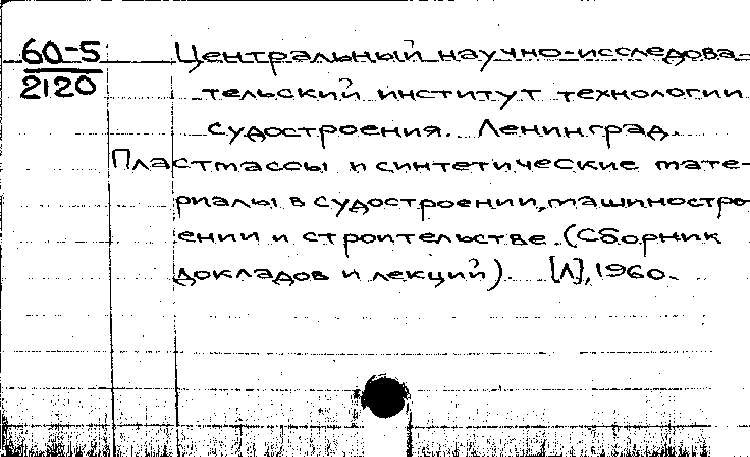 60-5
2120
Центральный научно-исследова-
тельский институт технологии
судостроения. Ленинград.
Пластмассы и синтетические мате-
риалы в судостроении, машиностро
ении и строительстве. (Сборник
докладов и лекций). [Л], 1960.